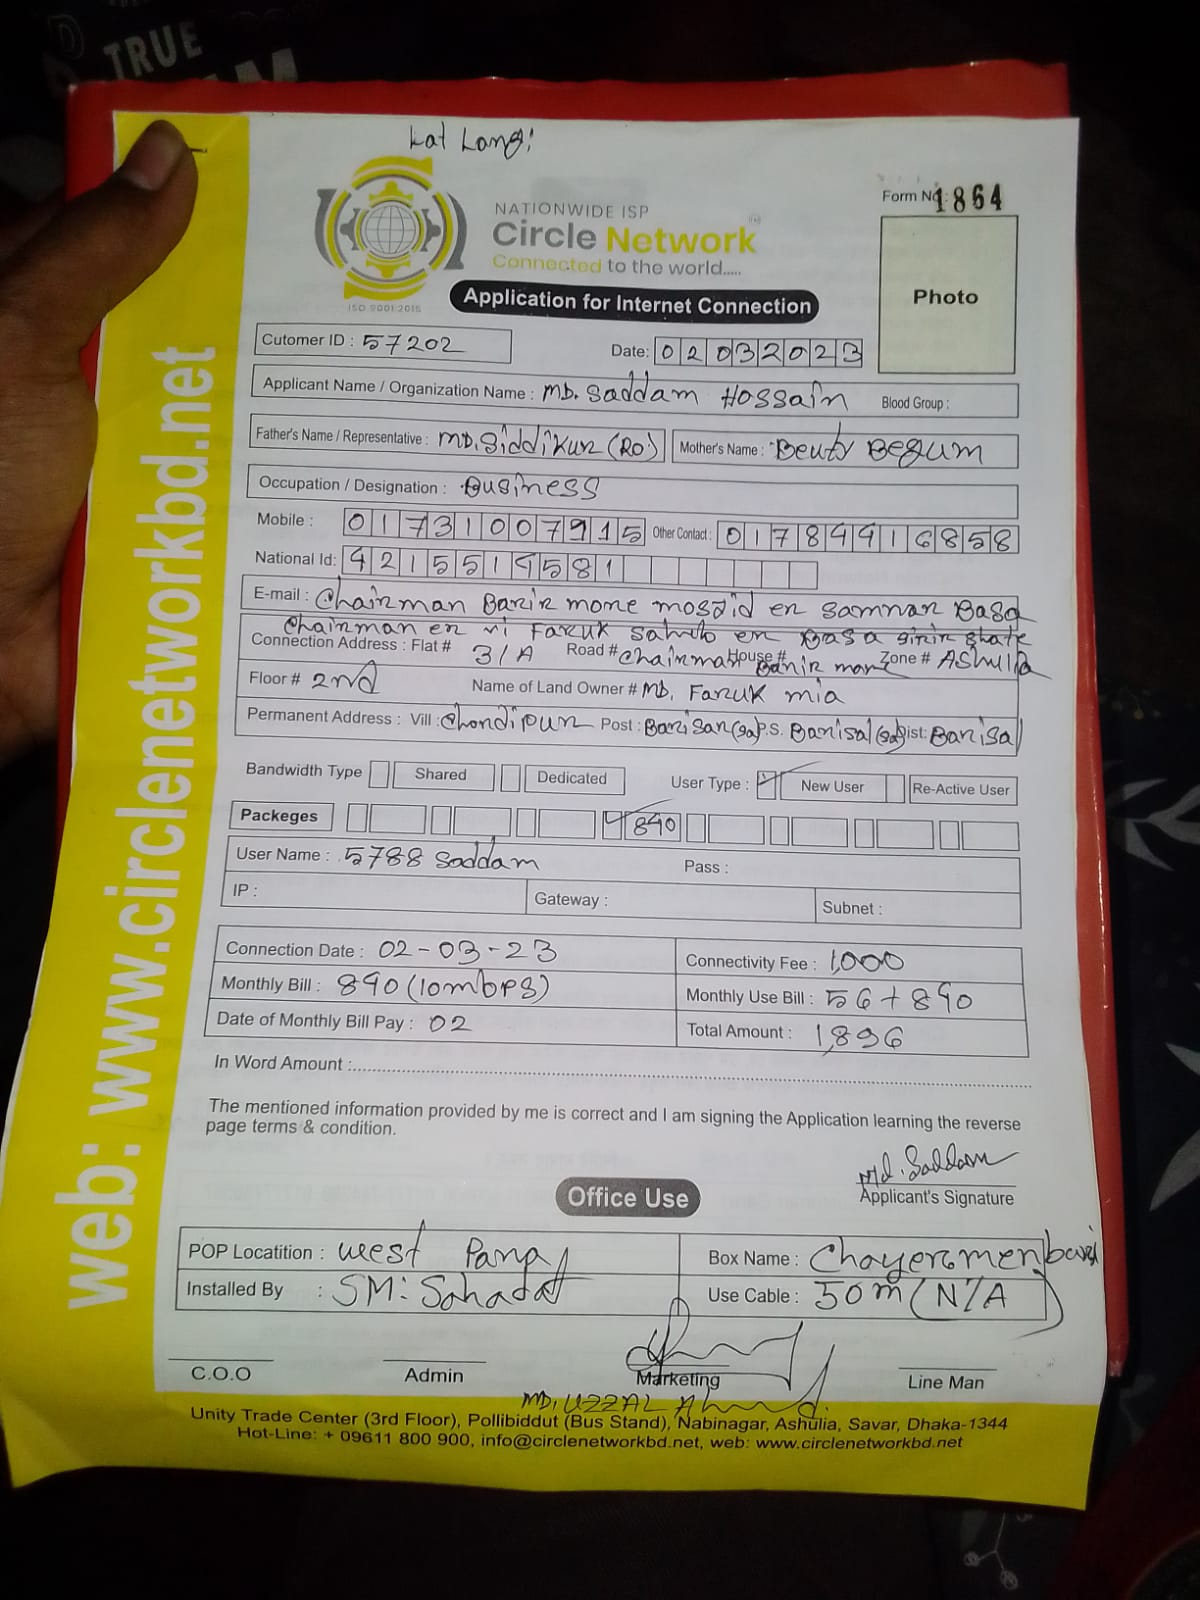 TRUE
Kat Lang:
Form No: 1864
NATIONWIDE ISP
Circle Network
Connected to the world.....
ISO 9001:2015
Application for Internet Connection
Photo
Cutomer ID : 57202
Date: 02032023
Applicant Name / Organization Name : MD. Saddam Hossain Blood Group :
Father's Name / Representative : MD. Siddikur (Ro) Mother's Name : Beuty Begum
Occupation / Designation : Business
Mobile : 01731007915 Other Contact : 01784916858
National Id: 4215519581
E-mail : Chairman Barir mone mosjid er samnar Basa
Chairman er Faruk saheb er Basa girir ghate
Connection Address : Flat # 31/A Road # Chairman House # Barir more Zone # Ashulia
Floor # 2nd Name of Land Owner # MD. Faruk mia
Permanent Address : Vill : Chondipur Post : Barisar(sa) P.S. Barisal (sa) Dist: Barisal
Bandwidth Type Shared Dedicated User Type : New User Re-Active User
Packeges 840
User Name : 5788 Saddam Pass :
IP : Gateway : Subnet :
Connection Date : 02-03-23 Connectivity Fee : 1,000
Monthly Bill : 840 (10mbps) Monthly Use Bill : 56 + 840
Date of Monthly Bill Pay : 02 Total Amount : 1,896
In Word Amount :
The mentioned information provided by me is correct and I am signing the Application learning the reverse
page terms & condition.
Md. Saddam
Applicant's Signature
Office Use
POP Locatition : West Para Box Name : Chayeromenbari
Installed By : SM: Sahadat Use Cable : 50m (N/A)
C.O.O Admin Marketing Line Man
MD. UZZAL Ahmed
Unity Trade Center (3rd Floor), Pollibiddut (Bus Stand), Nabinagar, Ashulia, Savar, Dhaka-1344
Hot-Line: + 09611 800 900, info@circlenetworkbd.net, web: www.circlenetworkbd.net
web: www.circlenetworkbd.net